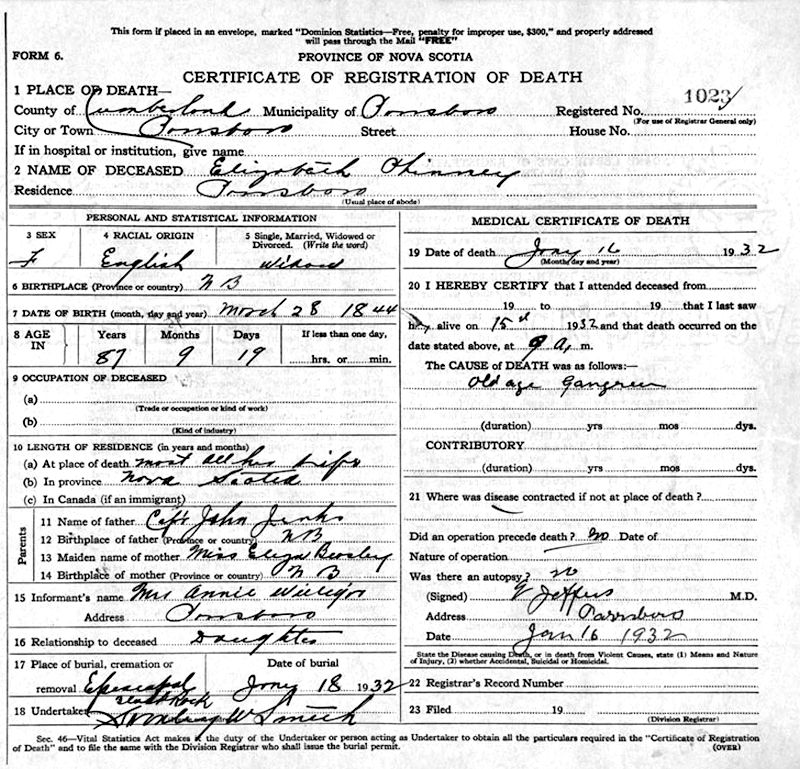 This form if placed in an envelope, marked "Dominion Statistics—Free, penalty for improper use, $300," and properly addressed
will pass through the Mail "FREE"
FORM 6.
PROVINCE OF NOVA SCOTIA
CERTIFICATE OF REGISTRATION OF DEATH
1 PLACE OF DEATH—
1023
County of Cumberland Municipality of Parrsboro Registered No.
(For use of Registrar General only)
City or Town Parrsboro Street House No.
If in hospital or institution, give name
2 NAME OF DECEASED Elizabeth Phinney
Residence Parrsboro
(Usual place of abode)
PERSONAL AND STATISTICAL INFORMATION
3 SEX 4 RACIAL ORIGIN 5 Single, Married, Widowed or Divorced. (Write the word)
F English Widow
6 BIRTHPLACE (Province or country) N B
7 DATE OF BIRTH (month, day and year) March 28 1844
8 AGE IN Years Months Days If less than one day,
87 9 19 hrs. or min.
9 OCCUPATION OF DECEASED
(a)
(Trade or occupation or kind of work)
(b)
(Kind of industry)
10 LENGTH OF RESIDENCE (in years and months)
(a) At place of death most all her life
(b) In province Nova Scotia
(c) In Canada (if an immigrant)
Parents
11 Name of father Capt John Jenks
12 Birthplace of father (Province or country) N B
13 Maiden name of mother Miss Eliza
14 Birthplace of mother (Province or country) N B
15 Informant's name Mrs Annie
Address Parrsboro
16 Relationship to deceased Daughter
17 Place of burial, cremation or removal Date of burial
Episcopal Jany 18 1932
18 Undertaker W Smith
MEDICAL CERTIFICATE OF DEATH
19 Date of death Jany 16 1932
(Month, day and year)
20 I HEREBY CERTIFY that I attended deceased from
19 to 19 that I last saw
alive on 15th 1932 and that death occurred on the
date stated above, at 9 a. m.
The CAUSE OF DEATH was as follows:—
Old age Gangrene
(duration) yrs mos dys.
CONTRIBUTORY
(duration) yrs mos dys.
21 Where was disease contracted if not at place of death?
Did an operation precede death? no Date of
Nature of operation
Was there an autopsy? no
(Signed) Jeffers M.D.
Address Parrsboro
Date Jan 16 1932
State the Disease causing Death, or in death from Violent Causes, state (1) Means and Nature
of Injury, (2) whether Accidental, Suicidal or Homicidal.
22 Registrar's Record Number
23 Filed 19
(Division Registrar)
Sec. 46—Vital Statistics Act makes it the duty of the Undertaker or person acting as Undertaker to obtain all the particulars required in the "Certificate of Registration
of Death" and to file the same with the Division Registrar who shall issue the burial permit. (OVER)